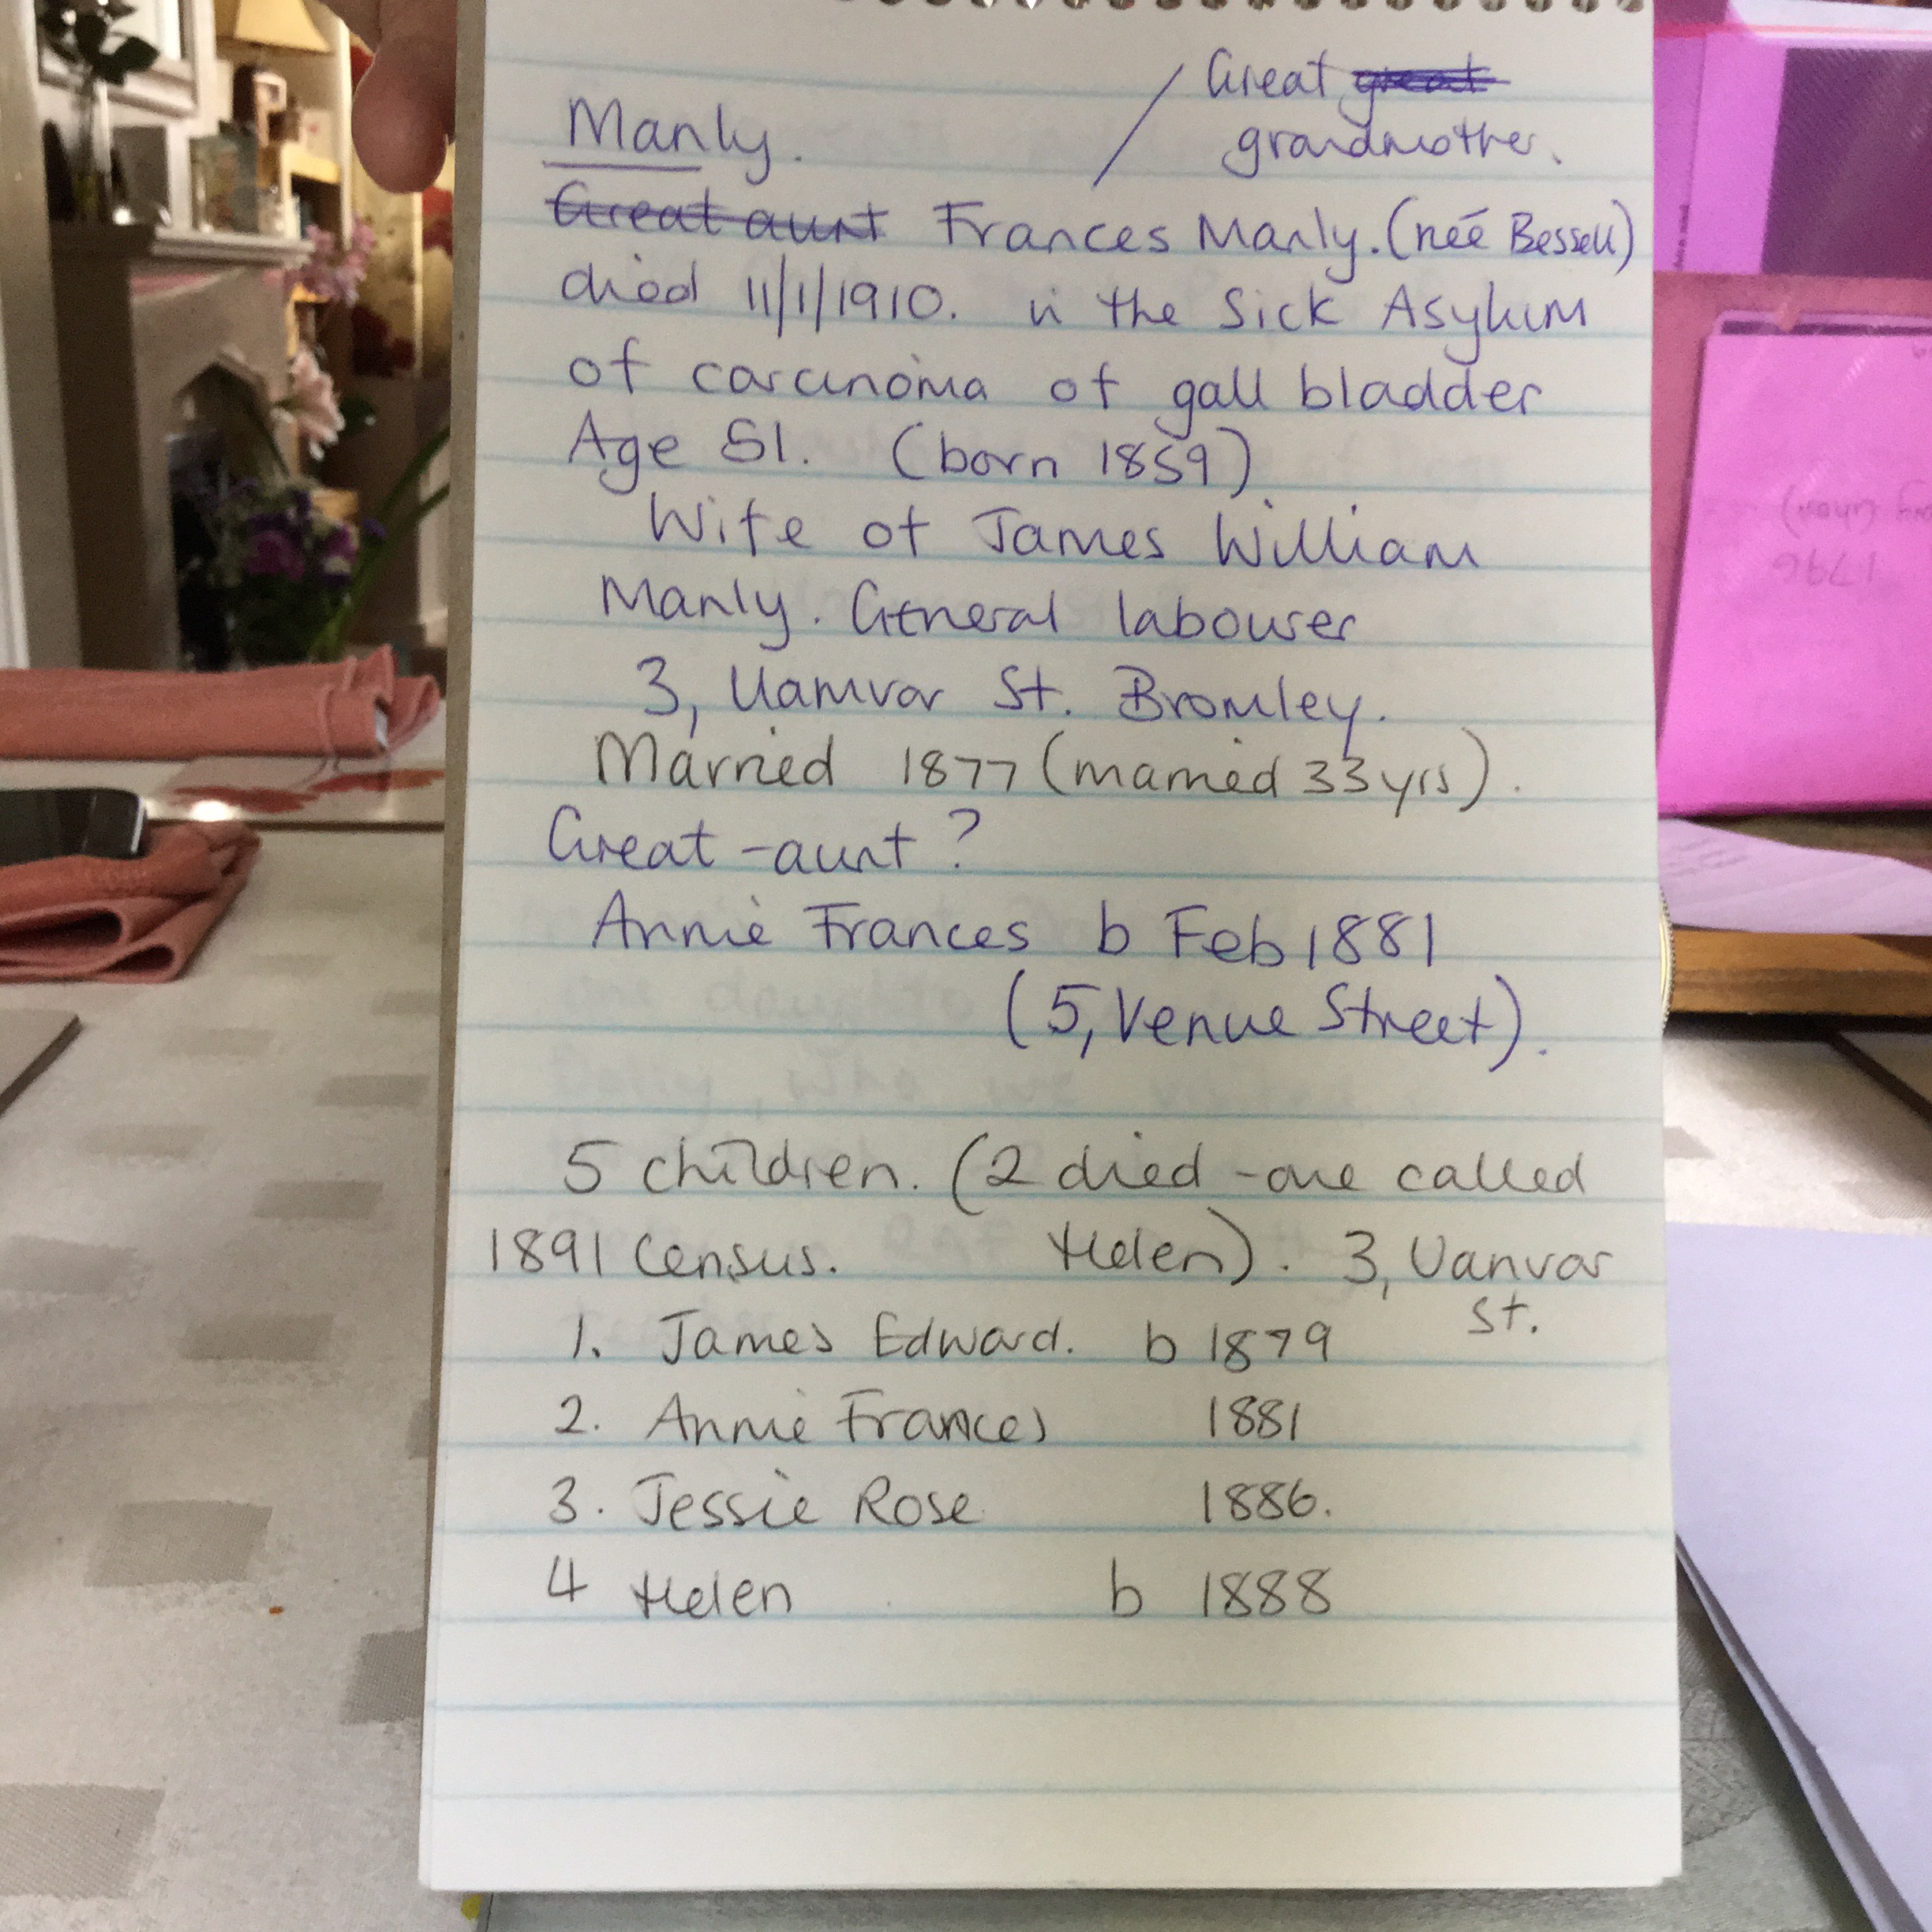 Great great
grandmother.
Manly.
Great aunt Frances Manly. (neé Bessell)
died 11/1/1910. in the Sick Asylum
of carcinoma of gall bladder
Age 51. (born 1859)
Wife of James William
Manly. General labourer
3, Uamvar St. Bromley.
Married 1877 (married 33 yrs).
Great-aunt?
Annie Frances b Feb 1881
(5, Venue Street).
5 children. (2 died - one called
1891 Census. Helen). 3, Uanvar
St.
1. James Edward. b 1879
2. Annie Frances 1881
3. Jessie Rose 1886.
4 Helen b 1888
1796